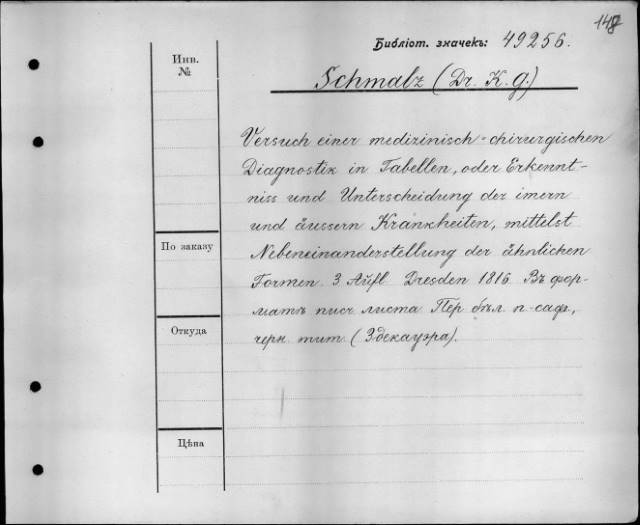 148
Библіот. значекъ: 49256.
Инв.
№
Schmalz (Dr. K. g.)
Versuch einer medizinisch-chirurgischen
Diagnostik in Tabellen, oder Erkennt-
niss und Unterscheidung der innern
und äussern Krankheiten, mittelst
По заказу
Nebeneinanderstellung der ähnlichen
Formen 3 Aufl Dresden 1816 Въ фор-
матъ писч листа Пер бѣл п-саф,
Откуда
черн тит (Здекауэра).
Цѣна